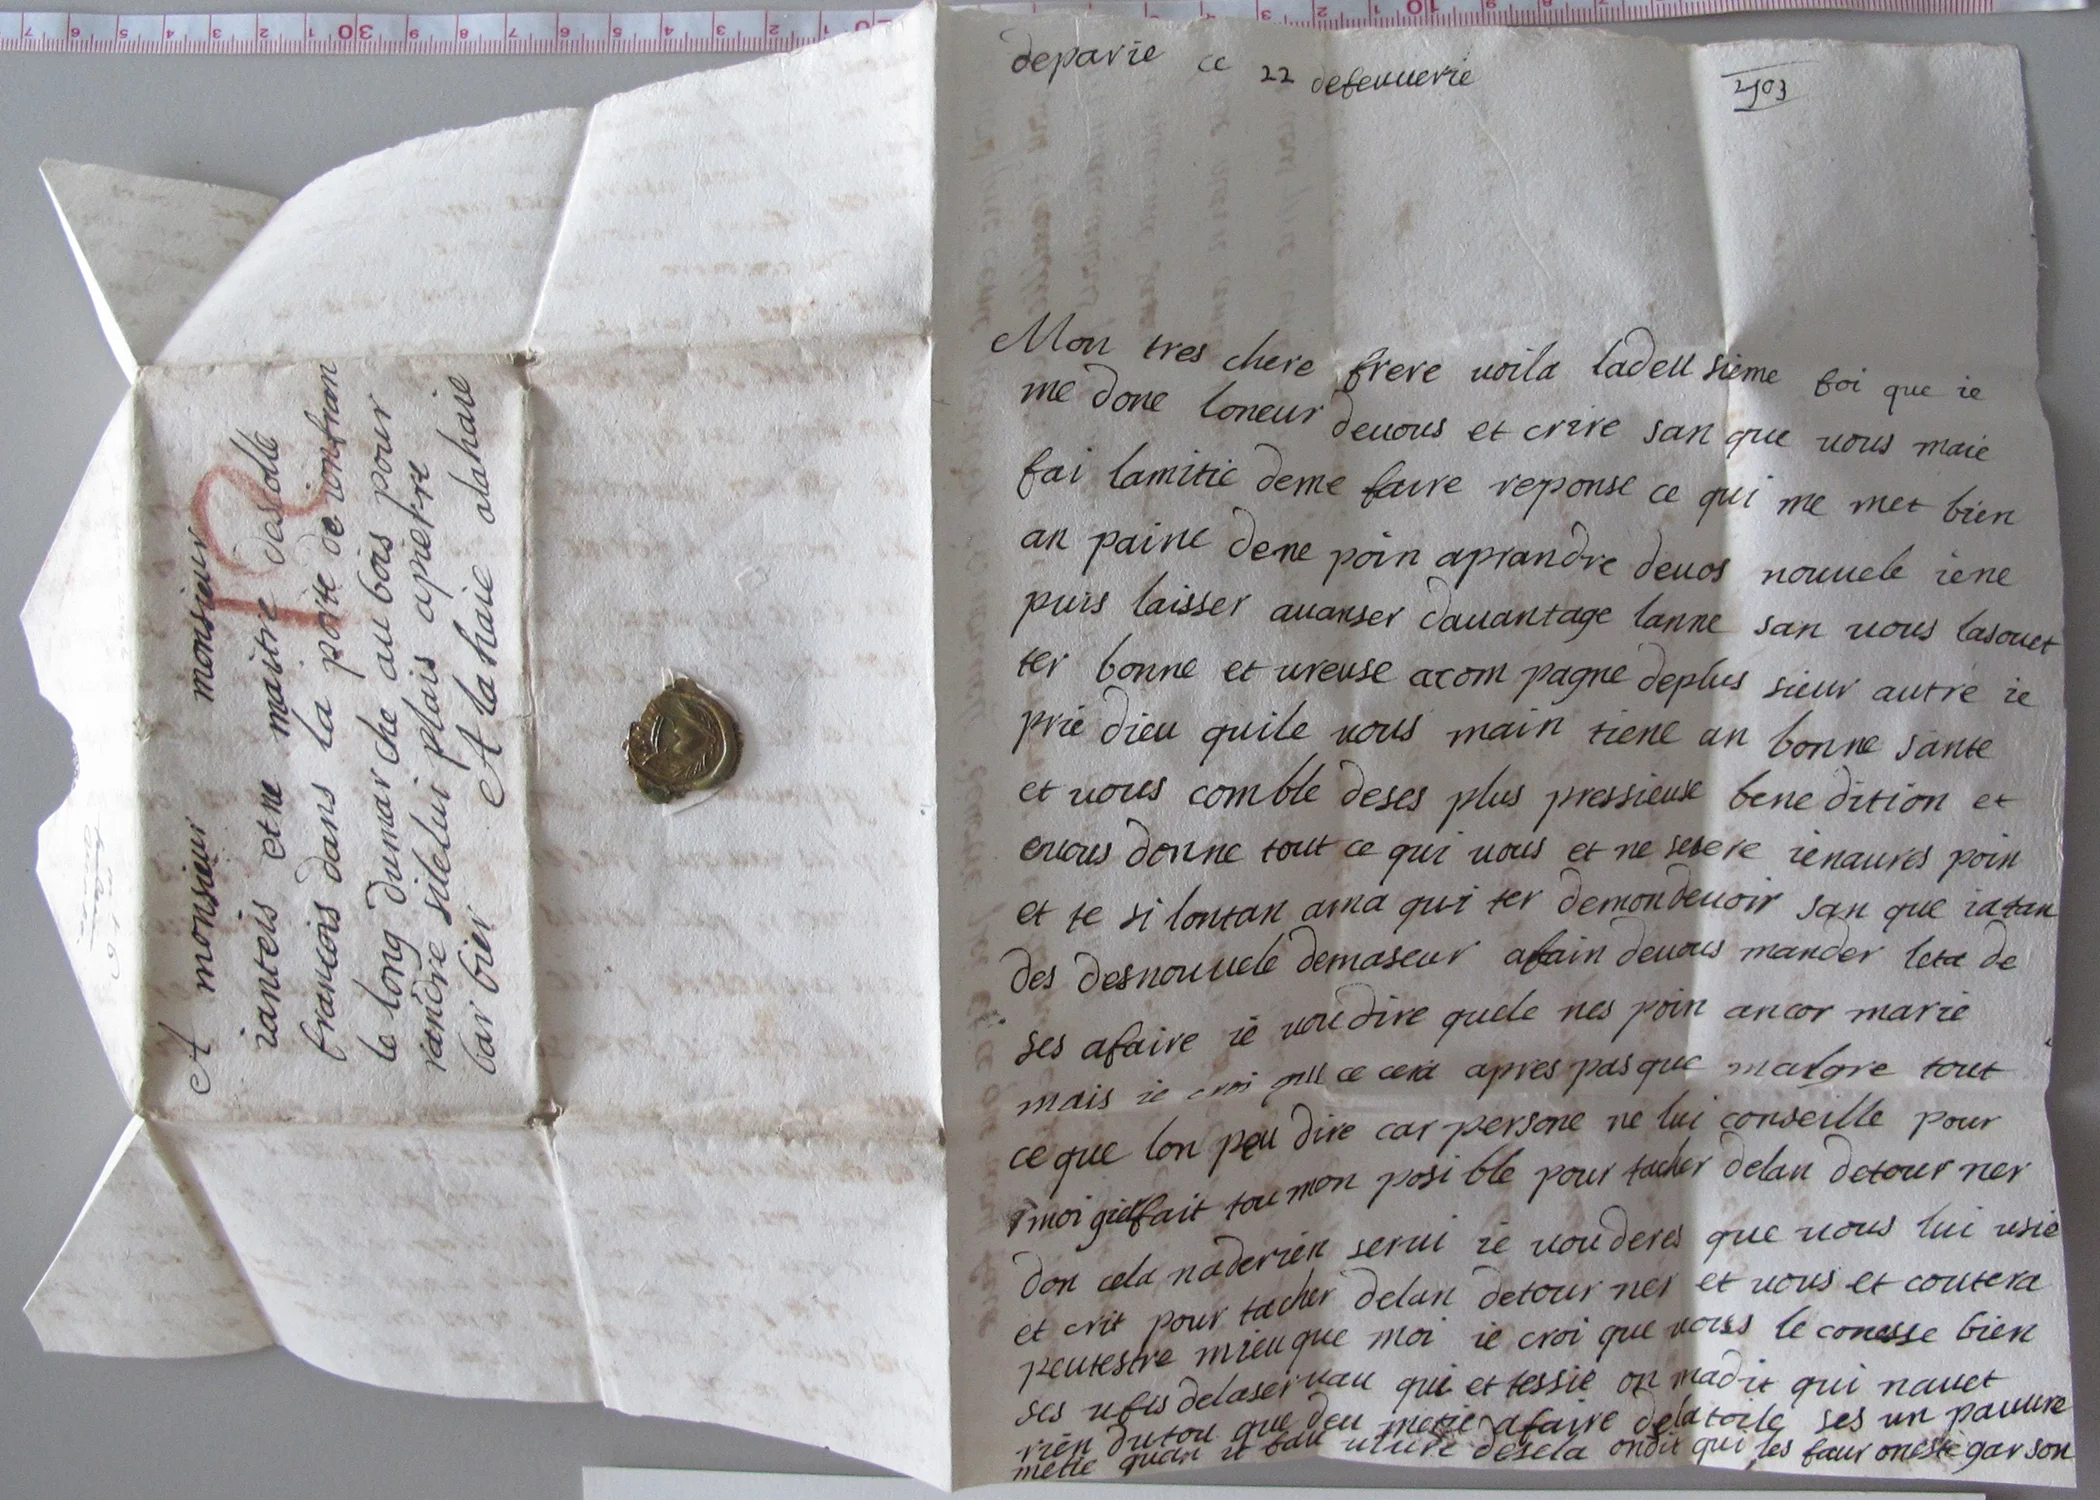 deparie ce 22 defeuuerie
Mon tres chere frere uoila ladeu sieme foi que ie
me done loneur deuous et crire san que uous maie
fai lamitie deme faire reponse ce qui me met bien
an paine dene poin aprandre deuos nouuele iene
puis laisser auanser dauantage lanne san uous lasouet
ter bonne et ureuse acom pagne deplus sieur autre ie
prie dieu quile uous main tiene an bonne sante
et uous comble deses plus pressieuse bene dition et
euous donne tout ce qui uous et ne sesere ienaures poin
et te si lontan ama qui ter demondeuoir san que iatan
des desnouuele demaseur afain deuous mander leta de
ses afaire ie uou dire quele nes poin ancor marie
mais ie croi que ce cera apres pasque malgre tout
ce que lon peu dire car persone ne lui conseille pour
moi fait tou mon posi ble pour tacher delan detour ner
don cela naderien serui ie uou deres que uous lui usie
et crit pour tacher delan detour ner et uous et coutera
peutestre mieu que moi ie croi que uous le conesse bien
ses ufis delaser uau qui et tessie on madit qui nauet
rien dutou que deu metie afaire delatoile ses un pauure
metie quan il fau uiure desela ondit qui les faur oneste garson
A monsieur monsieur
ianteis etne maitre desolle
francois dans la poste de ionfran
le long dumar che au bois pour
randre silelui plais apierre
bar bier A la haie alahaie